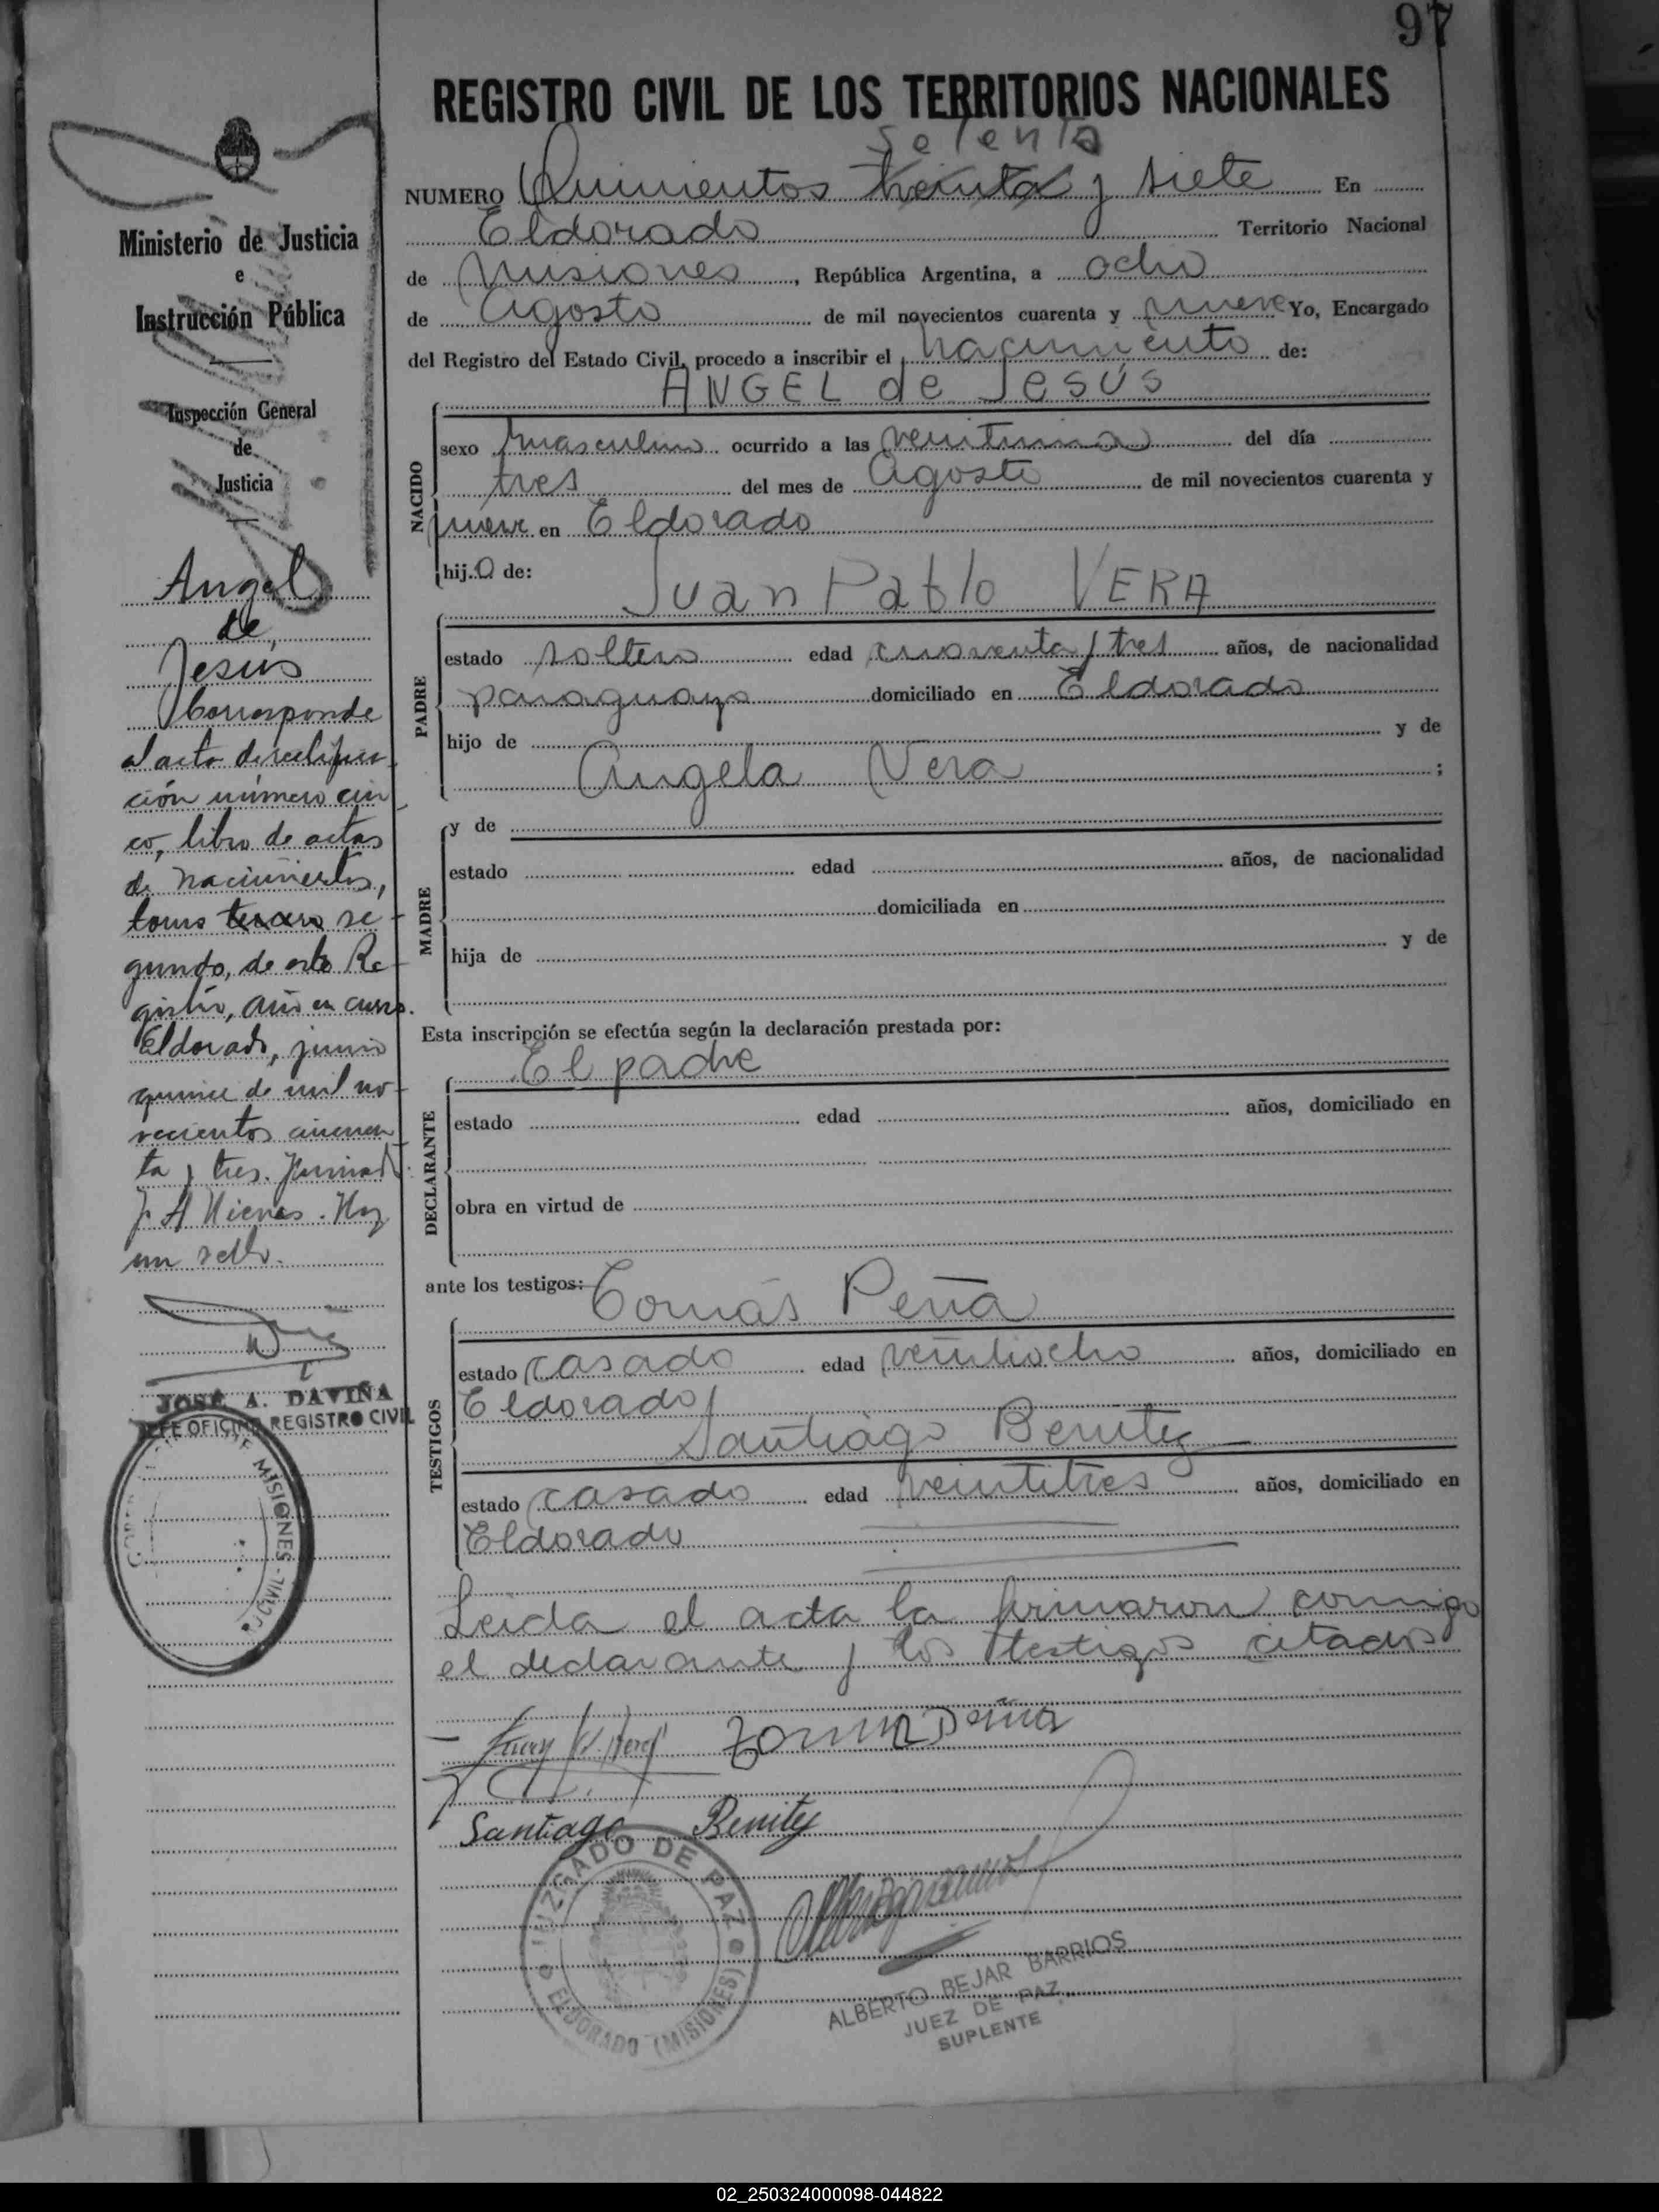 97
REGISTRO CIVIL DE LOS TERRITORIOS NACIONALES
Setenta
NUMERO Quinientos treinta y siete En
Eldorado Territorio Nacional
de Misiones, República Argentina, a ocho
de Agosto de mil novecientos cuarenta y nueve Yo, Encargado
del Registro del Estado Civil, procedo a inscribir el nacimiento de:
ANGEL de Jesús
NACIDO
sexo masculino ocurrido a las veintiuna del día
tres del mes de Agosto de mil novecientos cuarenta y
nueve en Eldorado
hijo de: Juan Pablo VERA
PADRE
estado soltero edad cuarenta y tres años, de nacionalidad
paraguayo domiciliado en Eldorado
hijo de y de
Angela Vera ;
MADRE
y de
estado edad años, de nacionalidad
domiciliada en
hija de y de
Esta inscripción se efectúa según la declaración prestada por:
El padre
DECLARANTE
estado edad años, domiciliado en
obra en virtud de
ante los testigos: Tomás Peña
TESTIGOS
estado casado edad veintiocho años, domiciliado en
Eldorado y
Santiago Benitez
estado casado edad veintitres años, domiciliado en
Eldorado
Leida el acta la firmaron conmigo
el declarante y los testigos citados
Santiago Benitez
JUZGADO DE PAZ
ELDORADO (MISIONES)
ALBERTO BEJAR BARRIOS
JUEZ DE PAZ
SUPLENTE
Ministerio de Justicia
e
Instrucción Pública
Inspección General
de
Justicia
Angel
de
Jesús
Corresponde
al acta de rectifica-
ción número cin
co, libro de actas
de nacimientos,
tomo tercero se-
gundo, de este Re-
gistro, año en curso.
Eldorado, junio
quince de mil no-
vecientos cincuen
ta y tres. Firmado:
J. A. Hay
un sello.
JOSÉ A. DAVIÑA
JEFE OFICINA REGISTRO CIVIL
MISIONES
CIVIL
02_250324000098-044822